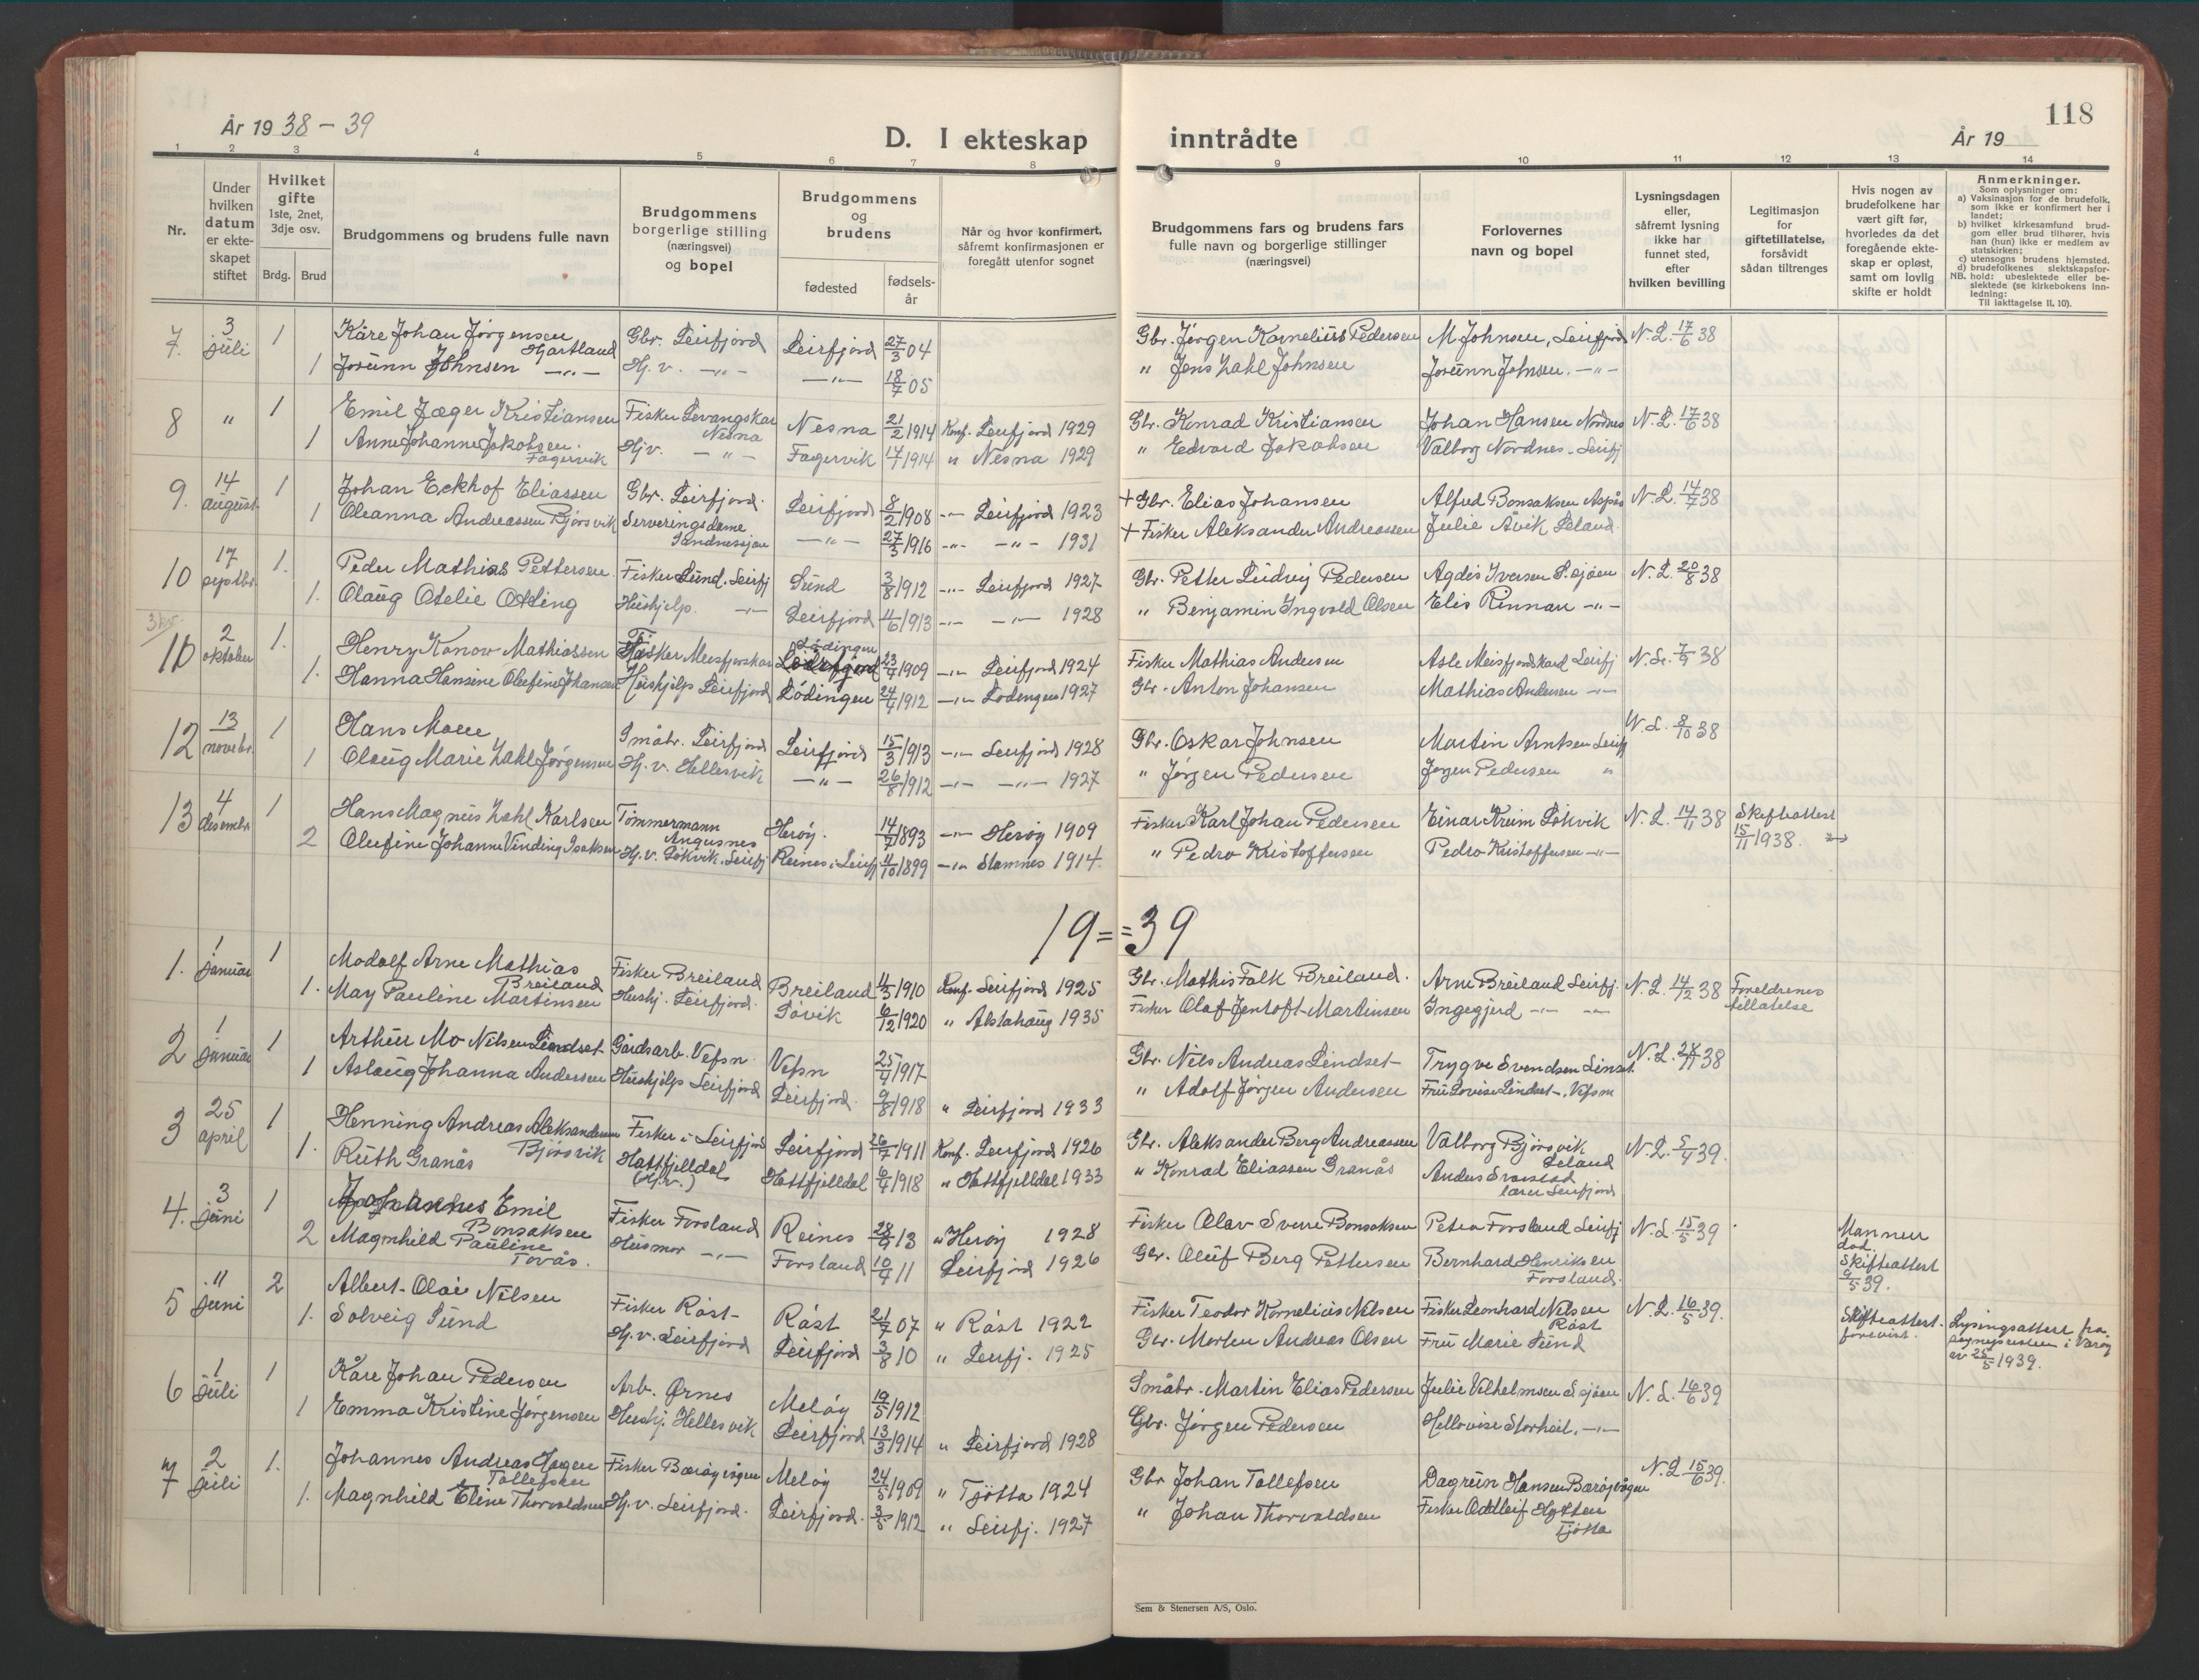 118
År 19 38 - 39
D. I ekteskap inntrådte
År 19
1 2 3 4 5 6 7 8 9 10 11 12 13 14
Nr.
Under hvilken datum er ekteskapet stiftet
Hvilket gifte 1ste, 2net, 3dje osv.
Brdg. Brud
Brudgommens og brudens fulle navn
Brudgommens borgerlige stilling (næringsvei) og bopel
Brudgommens og brudens
fødested
fødselsår
Når og hvor konfirmert, såfremt konfirmasjonen er foregått utenfor sognet
Brudgommens fars og brudens fars fulle navn og borgerlige stillinger (næringsvei)
Forlovernes navn og bopel
Lysningsdagen eller, såfremt lysning ikke har funnet sted, efter hvilken bevilling
Legitimasjon for giftetillatelse, forsåvidt sådan tiltrenges
Hvis nogen av brudefolkene har vært gift før, hvorledes da det foregående ekteskap er opløst, samt om lovlig skifte er holdt
Anmerkninger.
Som oplysninger om:
a) Vaksinasjon for de brudefolk, som ikke er konfirmert her i landet;
b) hvilket kirkesamfund brudgom eller brud tilhører, hvis han (hun) ikke er medlem av statskirken;
c) utensogns brudens hjemsted.
d) brudefolkenes slektskapsforhold: ubeslektede eller beslektede (se kirkebokens innledning:
NB.
Til iakttagelse II. 10).
7. 3 juli 1 Kåre Johan Jørgensen Hjartland Gbr. Leirfjord Leirfjord 27/3 04 Gbr. Jørgen Kornelius Pedersen M. Johnsen, Leirfjord N.L. 17/6 38
1 Jorunn Johnsen -"- Hj.v. -"- -"- 18/7 05 " Jens Zahl Johnsen Jorunn Johnsen. -"-
8 " 1 Emil Jæger Kristiansen Fisker Levangskar Nesna Nesna 21/2 1914 Konf. Leirfjord 1929 Gbr. Konrad Kristiansen Johan Hansen Nordnes N.L. 17/6 38
1 Anne Johanne Jakobsen. Fagervik Hj.v. -"- Fagervik 17/7 1914 " Nesna 1929 " Edvard Jakobsen Valborg Nordnes - Leirfj
9. 14 august 1 Johan Eckhof Eliassen Gbr. Leirfjord. Leirfjord 8/2 1908 -"- Leirfjord 1923 + Gbr. Elias Johansen Alfred Bonsaksen Aspås N.L. 14/7 38
1 Oleanna Andreassen Bjørsvik Serveringsdame Sandnessjøen -"- 27/3 1916 -"- -"- 1931 + Fisker Aleksander Andreassen Julie Åvik Leland.
10 17 septbr. 1. Peder Mathias Pettersen. Fisker Sund. Leirfj Sund 3/8 1912 -"- Leirfjord 1927 Gbr. Petter Ludvig Pedersen Agdis Iversen S.sjøen N.L. 20/8 38
1. Olaug Otelie Olting Hushjelp. -"- Leirfjord 11/6 1913 -"- -"- 1928 " Benjamin Ingvald Olsen Elis Rinnan -"-
11 2 oktober 1. Henry Konow Mathiassen Fisker Meisfjordskar Lødingen 23/7 1909 -"- Leirfjord 1924 Fisker Mathias Andersen Asle Meisfjordskard Leirfj N.L. 7/9 38
1. Hanna Hansine Olufine Johansen Hushjelp Leirfjord Lødingen 24/4 1912 -"- Lødingen 1927 Gbr. Anton Johansen Mathias Andersen -"-
12 13 novebr. 1 Hans Moen Småbr. Leirfjord Leirfjord 15/3 1913 -"- Leirfjord 1928 Gbr. Oskar Johnsen Martin Arntsen Leirfj N.L. 8/10 38
1 Olaug Marie Zahl Jørgensen Hj.v. Hellesvik -"- 26/8 1912 -"- -"- 1927 " Jørgen Pedersen Jørgen Pedersen "
13 4 desembr. 1 Hans Magnus Zahl Karlsen Tømmermann Angusnes Herøy. 14/7 1893 -"- Herøy 1909 Fisker Karl Johan Pedersen Einar Kreim Løkvik N.L. 14/11 38 Skifteattest 15/11 1938.
2 Olufine Johanne Vinding Isaksen Hj.v. Løkvik. Leirfj Reines i Leirfj 11/10 1899 -"- Stamnes 1914. " Pedro Kristoffersen Pedro Kristoffersen -"-
19 = = 39
1. 1 januar 1 Modolf Arne Mathias Breiland Fisker Breiland Breiland 11/3 1910 Konf. Leirfjord 1925 Gbr. Mathis Falk Breiland. Arne Breiland Leirfj. N.L. 14/12 38 Foreldrenes tillatelse
1. May Pauline Martinsen Hushj. Leirfjord. Søvik 6/12 1920 " Alstahaug 1935 Fisker Olaf Jentoft Martinsen Ingegjerd -"- -"-
2 1 januar 1 Arthur Mo Nilsen Lindset Gårdsarb. Vefsn Vefsn 25/4 1917 Gbr. Nils Andreas Lindset Trygve Svendsen Linset. N.L. 28/11 38
1 Aslaug Johanna Andersen Hushjelp Leirfjord Leirfjord. 9/8 1918 " Leirfjord 1933 " Adolf Jørgen Andersen Fru Lovise Lindset -, Vefsn
3 25 april 1 Henning Andreas Aleksandersen Bjørsvik Fisker i Leirfjord Leirfjord 26/7 1911 Konf. Leirfjord 1926 Gbr. Aleksander Berg Andreassen Valborg Bjørsvik Leland N.L. 5/4 39.
1. Ruth Granås Hattfjelldal (Hj.v.) Hattfjelldal 6/4 1918 " Hattfjelldal 1933 " Konrad Eliassen Granås Anders lærer Leirfjord
4. 3 juni 1 Johannes Emil Bonsaksen Fisker Forsland Reines 28/9 13 " Herøy 1928 Fisker Olav Sverre Bonsaksen Petra Forsland Leirfj N.L. 15/5 39 Mannen død. Skifteattest 9/5 39.
2 Magnhild Pauline Tovås. Husmor -"- Forsland 10/4 11 Leirfjord 1926 Gbr. Oluf Berg Pettersen Bernhard Henriksen Forsland.
5 11 juni 2 Albert Olai Nilsen Fisker Røst Røst 21/7 07 " Røst 1922 Fisker Teodor Kornelius Nilsen Fisker Leonhard Nilsen Røst N.L. 16/5 39. Skifteattest forevist. Lysingsattest fra sognepresten i Værøy av 25/5 1939.
1. Solveig Sund Hj.v. Leirfjord Leirfjord 3/8 10 " Leirfj. 1925 Gbr. Morten Andreas Olsen Fru Marie Sund
6 1 juli 1 Kåre Johan Pedersen Arb. Ørnes Meløy 19/5 1912 Småbr. Martin Elias Pedersen Julie Vilhelmsen S.sjøen N.L. 16/6 39
1 Emma Kristine Jørgensen Hushj. Hellesvik Leirfjord 13/3 1914 " Leirfjord 1928 Gbr. Jørgen Pedersen Hellovise Storheil. -"-
7 2 juli 1. Johannes Andreas Hagen Tollefsen Fisker Bærøyvågen Meløy 24/5 1909 " Tjøtta 1924 Gbr Johan Tollefsen Dagrun Hansen Bærøyvågen N.L 15/6 39.
1. Magnhild Eline Thorvaldsen Hj.v. Leirfjord. Leirfjord. 3/5 1912 " Leirfj. 1927 " Johan Thorvaldsen Fisker Oddleif Hytten Tjøtta
Sem & Stenersen A/S, Oslo.